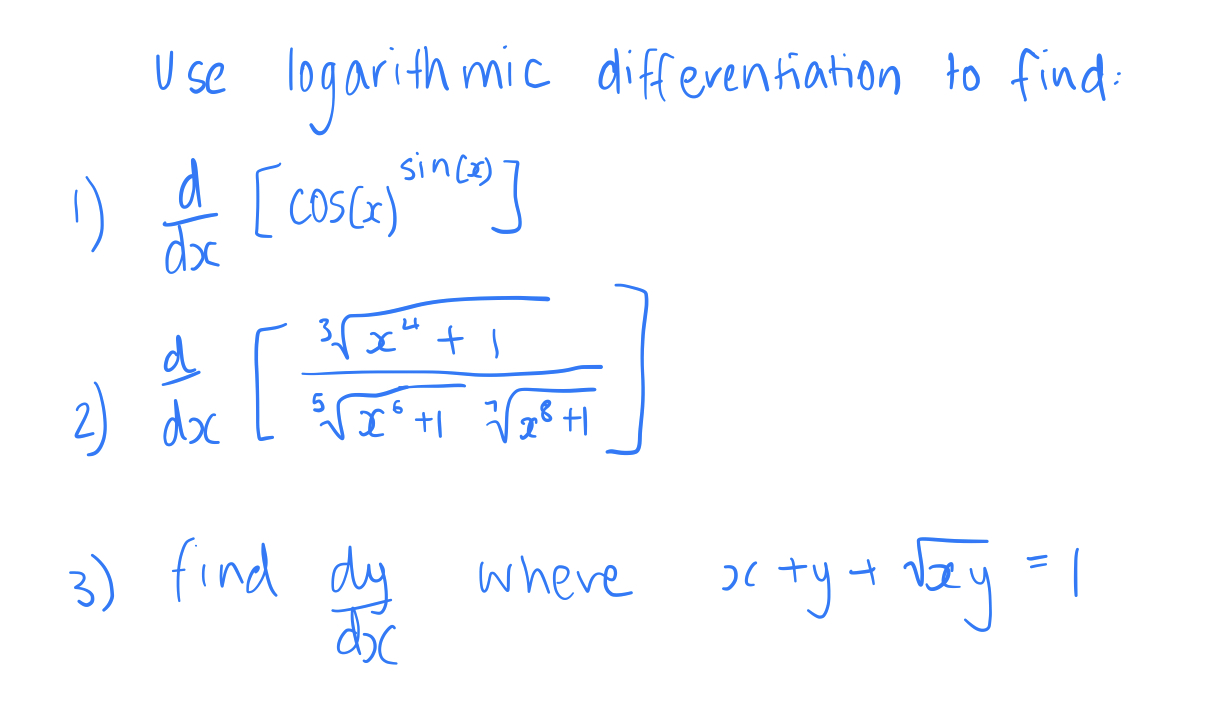 Use logarithmic differentiation to find:
1) d/dx [cos(x)^sin(x)]
2) d/dx [∛(x⁴ + 1) / (⁵√(x⁶ + 1) ⁷√(x⁸ + 1))]
3) find dy/dx where x + y + √(xy) = 1